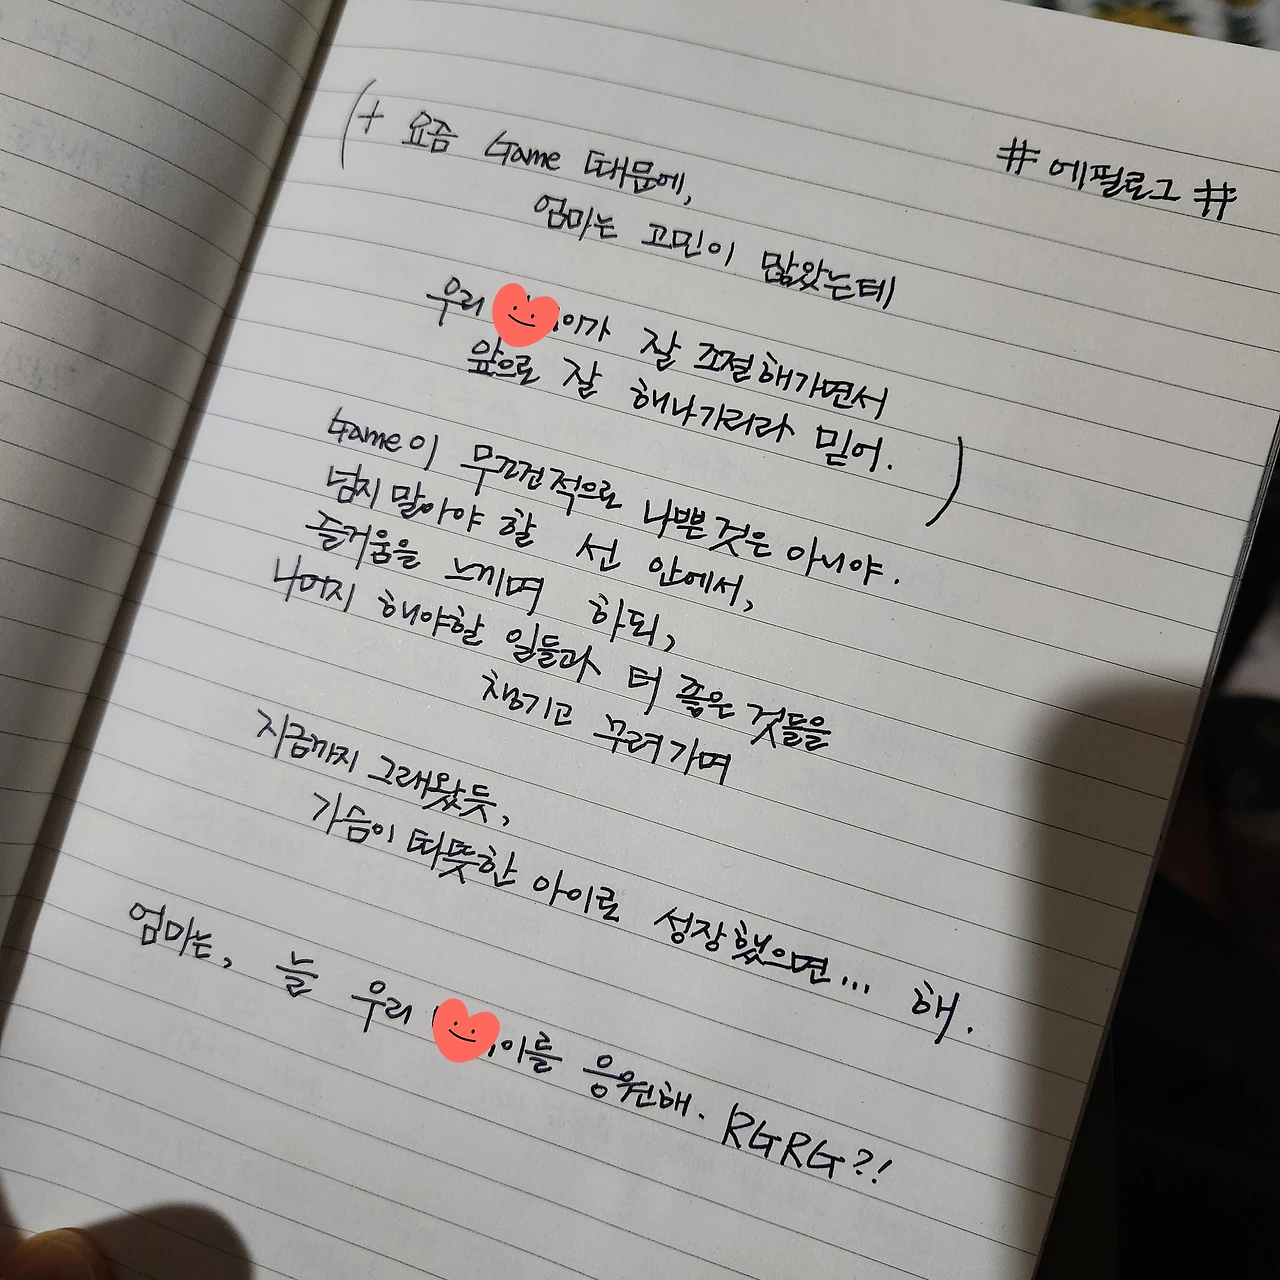 # 에필로그 #
(+ 요즘 Game 때문에,
엄마는 고민이 많았는데
우리 이가 잘 조절해가면서
앞으로 잘 해나가리라 믿어.)
Game이 무조건적으로 나쁜 것은 아니야.
넘지 말아야 할 선 안에서,
즐거움을 느끼며 하되,
나머지 해야할 일들과 더 좋은 것들을
챙기고 꾸려가며
지금까지 그래왔듯,
가슴이 따뜻한 아이로 성장했으면... 해.
엄마는, 늘 우리 이를 응원해. RGRG?!